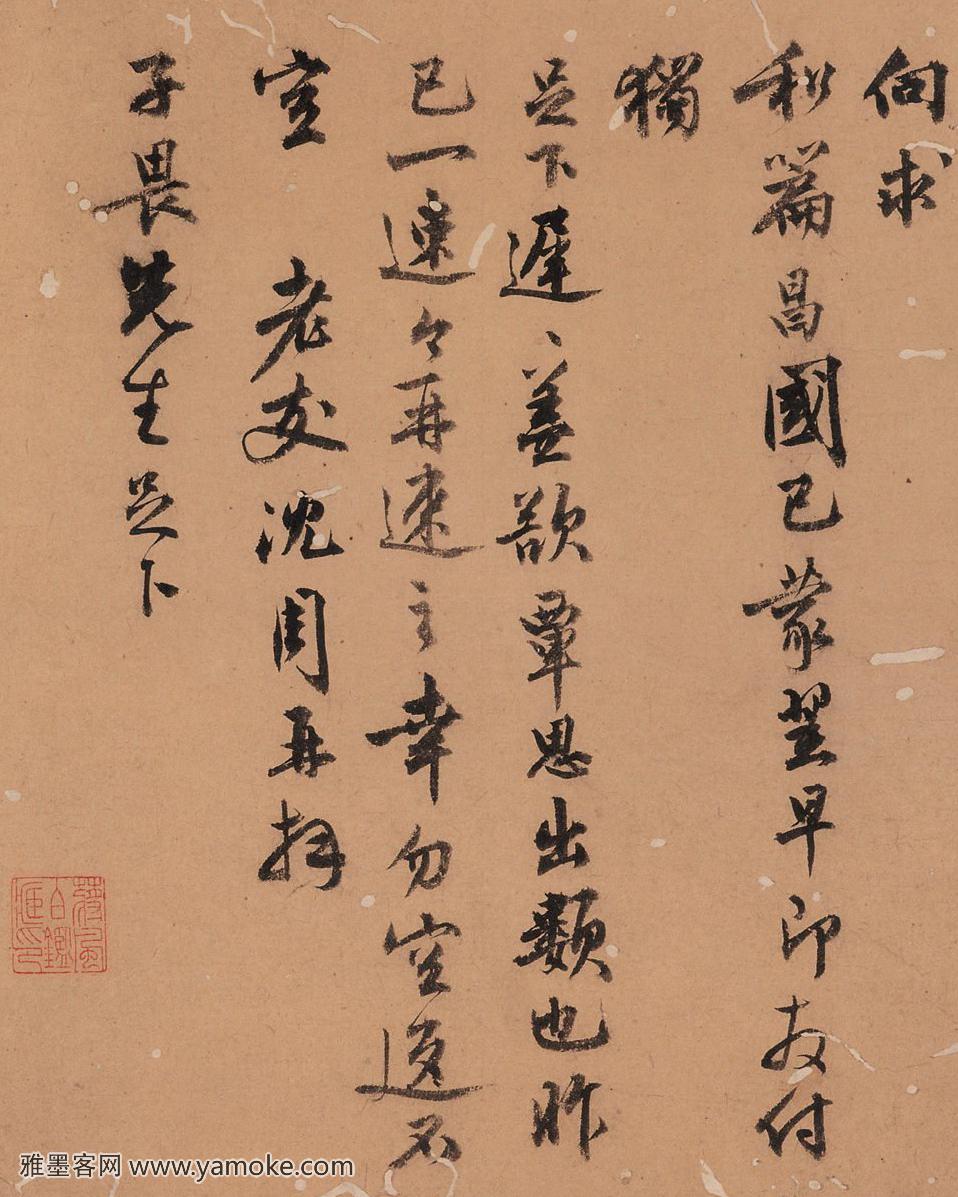 向求
和篇昌國已蒙翌早即付
獨
足下遲〻蓋欲覃思出類也昨
已一速今再速之幸勿空返不
宣 老友沈周再拜
子畏先生足下
雅墨客网 www.yamoke.com